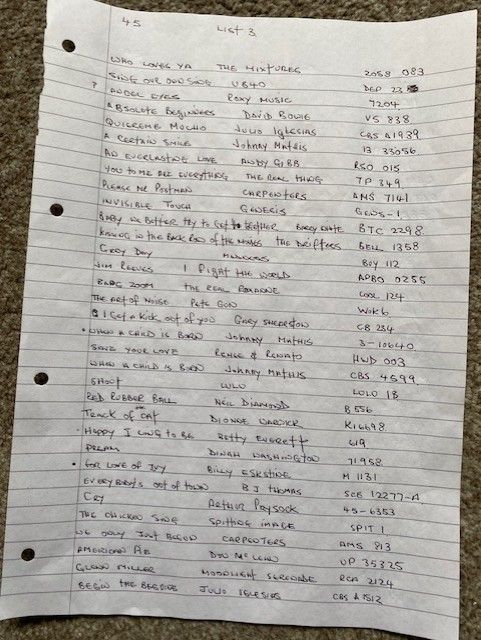 45 List 3
WHO LOVES YA THE MIXTURES 2058 083
SING OUR OWN SONG UB40 DEP 23
? ANGEL EYES ROXY MUSIC 7204
ABSOLUTE BEGINNERS DAVID BOWIE VS 838
QUIEREME MUCHO JULIO IGLESIAS CBS A1939
A CERTAIN SMILE JOHNNY MATHIS 13 33056
AN EVERLASTING LOVE ANDY GIBB RSO 015
YOU TO ME ARE EVERYTHING THE REAL THING 7P 349
PLEASE MR POSTMAN CARPENTERS AMS 7141
INVISIBLE TOUCH GENESIS GENS-1
BABY WE BETTER TRY TO GET TOGETHER BARRY WHITE BTC 2298
KISSING IN THE BACK ROW OF THE MOVIES THE DRIFTERS BELL 1358
GREY DAY MADNESS BUY 112
JIM REEVES I FIGHT THE WORLD APBO 0255
BABS ZOOM THE REAL ROXANNE COOL 124
THE ART OF NOISE PETE GUN WOK6
I GET A KICK OUT OF YOU GARY SHEARSTON CB 234
• WHEN A CHILD IS BORN JOHNNY MATHIS 3-10640
SAVE YOUR LOVE RENEE & RENATO HWD 003
WHEN A CHILD IS BORN JOHNNY MATHIS CBS 4599
SHOUT LULU LULU 1B
RED RUBBER BALL NEIL DIAMOND B 556
TRACK OF THE CAT DIONNE WARWICK K16698
• HAPPY I LONG TO BE BETTY EVERETT 619
DREAM DINAH WASHINGTON 71958
• FOR LOVE OF IVY BILLY ECKSTINE M 1131
EVERYBODY'S OUT OF TOWN B J THOMAS SCE 12277-A
CRY ARTHUR PRYSOCK 45-6353
THE CHICKEN SONG SPITTING IMAGE SPIT 1
WE ONLY JUST BEGUN CARPENTERS AMS 813
AMERICAN PIE DON MCLEAN UP 35325
GLENN MILLER MOONLIGHT SERENADE RCA 2124
BEGIN THE BEGUINE JULIO IGLESIAS CBS A1512